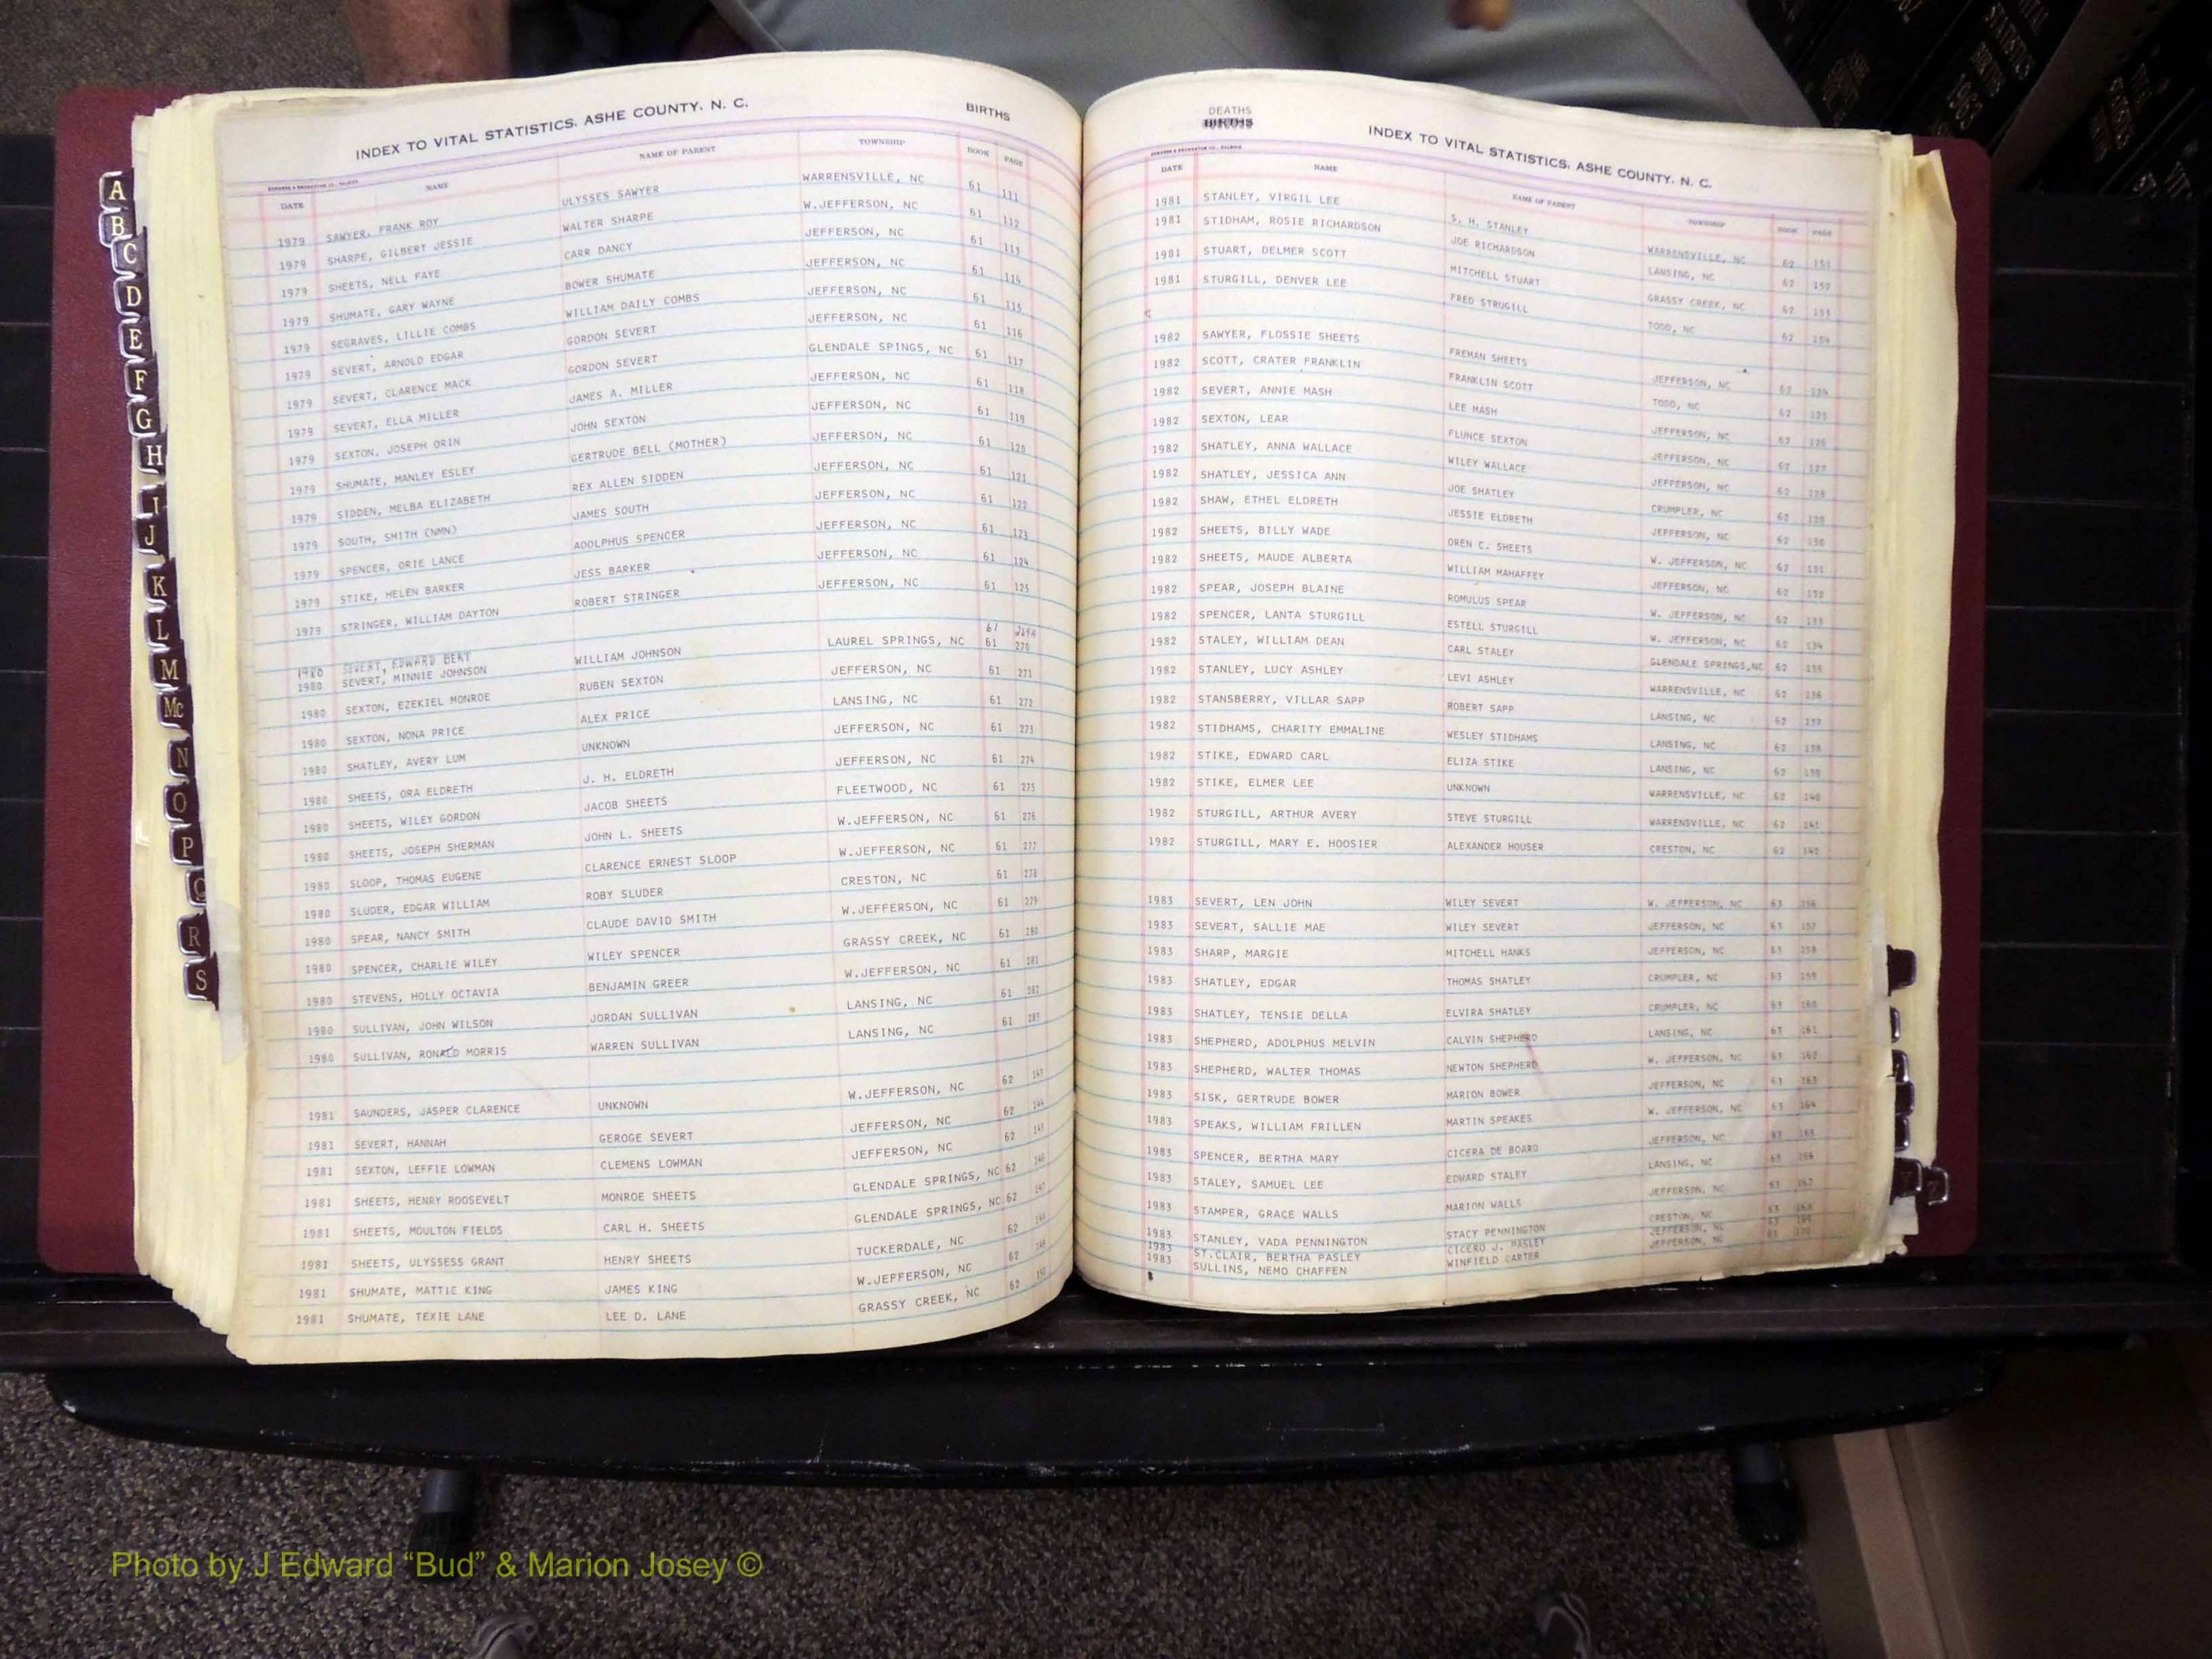 INDEX TO VITAL STATISTICS, ASHE COUNTY, N. C. BIRTHS
DATE NAME NAME OF PARENT TOWNSHIP BOOK PAGE
1979 SAWYER, FRANK ROY ULYSSES SAWYER WARRENSVILLE, NC 61 111
1979 SHARPE, GILBERT JESSIE WALTER SHARPE W.JEFFERSON, NC 61 112
1979 SHEETS, NELL FAYE CARR DANCY JEFFERSON, NC 61 113
1979 SHUMATE, GARY WAYNE BOWER SHUMATE JEFFERSON, NC 61 114
1979 SEGRAVES, LILLIE COMBS WILLIAM DAILY COMBS JEFFERSON, NC 61 115
1979 SEVERT, ARNOLD EDGAR GORDON SEVERT JEFFERSON, NC 61 116
1979 SEVERT, CLARENCE MACK GORDON SEVERT GLENDALE SPINGS, NC 61 117
1979 SEVERT, ELLA MILLER JAMES A. MILLER JEFFERSON, NC 61 118
1979 SEXTON, JOSEPH ORIN JOHN SEXTON JEFFERSON, NC 61 119
1979 SHUMATE, MANLEY ESLEY GERTRUDE BELL (MOTHER) JEFFERSON, NC 61 120
1979 SIDDEN, MELBA ELIZABETH REX ALLEN SIDDEN JEFFERSON, NC 61 121
1979 SOUTH, SMITH (NMN) JAMES SOUTH JEFFERSON, NC 61 122
1979 SPENCER, ORIE LANCE ADOLPHUS SPENCER JEFFERSON, NC 61 123
1979 STIKE, HELEN BARKER JESS BARKER JEFFERSON, NC 61 124
1979 STRINGER, WILLIAM DAYTON ROBERT STRINGER JEFFERSON, NC 61 125
1980 SEVERT, EDWARD BERT 61 269A
1980 SEVERT, MINNIE JOHNSON WILLIAM JOHNSON LAUREL SPRINGS, NC 61 270
1980 SEXTON, EZEKIEL MONROE RUBEN SEXTON JEFFERSON, NC 61 271
1980 SEXTON, NONA PRICE ALEX PRICE LANSING, NC 61 272
1980 SHATLEY, AVERY LUM UNKNOWN JEFFERSON, NC 61 273
1980 SHEETS, ORA ELDRETH J. H. ELDRETH JEFFERSON, NC 61 274
1980 SHEETS, WILEY GORDON JACOB SHEETS FLEETWOOD, NC 61 275
1980 SHEETS, JOSEPH SHERMAN JOHN L. SHEETS W.JEFFERSON, NC 61 276
1980 SLOOP, THOMAS EUGENE CLARENCE ERNEST SLOOP W.JEFFERSON, NC 61 277
1980 SLUDER, EDGAR WILLIAM ROBY SLUDER CRESTON, NC 61 278
1980 SPEAR, NANCY SMITH CLAUDE DAVID SMITH W.JEFFERSON, NC 61 279
1980 SPENCER, CHARLIE WILEY WILEY SPENCER GRASSY CREEK, NC 61 280
1980 STEVENS, HOLLY OCTAVIA BENJAMIN GREER W.JEFFERSON, NC 61 281
1980 SULLIVAN, JOHN WILSON JORDAN SULLIVAN LANSING, NC 61 282
1980 SULLIVAN, RONALD MORRIS WARREN SULLIVAN LANSING, NC 61 283
1981 SAUNDERS, JASPER CLARENCE UNKNOWN W.JEFFERSON, NC 62 143
1981 SEVERT, HANNAH GEROGE SEVERT JEFFERSON, NC 62 144
1981 SEXTON, LEFFIE LOWMAN CLEMENS LOWMAN JEFFERSON, NC 62 145
1981 SHEETS, HENRY ROOSEVELT MONROE SHEETS GLENDALE SPRINGS, NC 62 146
1981 SHEETS, MOULTON FIELDS CARL H. SHEETS GLENDALE SPRINGS, NC 62 147
1981 SHEETS, ULYSSESS GRANT HENRY SHEETS TUCKERDALE, NC 62 148
1981 SHUMATE, MATTIE KING JAMES KING W.JEFFERSON, NC 62 149
1981 SHUMATE, TEXIE LANE LEE D. LANE GRASSY CREEK, NC 62 150
DEATHS
BIRTHS INDEX TO VITAL STATISTICS, ASHE COUNTY, N. C.
DATE NAME NAME OF PARENT TOWNSHIP BOOK PAGE
1981 STANLEY, VIRGIL LEE S. H. STANLEY WARRENSVILLE, NC 62 151
1981 STIDHAM, ROSIE RICHARDSON JOE RICHARDSON LANSING, NC 62 152
1981 STUART, DELMER SCOTT MITCHELL STUART GRASSY CREEK, NC 62 153
1981 STURGILL, DENVER LEE FRED STRUGILL TODD, NC 62 154
1982 SAWYER, FLOSSIE SHEETS FREMAN SHEETS JEFFERSON, NC 62 124
1982 SCOTT, CRATER FRANKLIN FRANKLIN SCOTT TODD, NC 62 125
1982 SEVERT, ANNIE MASH LEE MASH JEFFERSON, NC 62 126
1982 SEXTON, LEAR FLUNCE SEXTON JEFFERSON, NC 62 127
1982 SHATLEY, ANNA WALLACE WILEY WALLACE JEFFERSON, NC 62 128
1982 SHATLEY, JESSICA ANN JOE SHATLEY CRUMPLER, NC 62 129
1982 SHAW, ETHEL ELDRETH JESSIE ELDRETH JEFFERSON, NC 62 130
1982 SHEETS, BILLY WADE OREN C. SHEETS W. JEFFERSON, NC 62 131
1982 SHEETS, MAUDE ALBERTA WILLIAM MAHAFFEY JEFFERSON, NC 62 132
1982 SPEAR, JOSEPH BLAINE ROMULUS SPEAR W. JEFFERSON, NC 62 133
1982 SPENCER, LANTA STURGILL ESTELL STURGILL W. JEFFERSON, NC 62 134
1982 STALEY, WILLIAM DEAN CARL STALEY GLENDALE SPRINGS,NC 62 135
1982 STANLEY, LUCY ASHLEY LEVI ASHLEY WARRENSVILLE, NC 62 136
1982 STANSBERRY, VILLAR SAPP ROBERT SAPP LANSING, NC 62 137
1982 STIDHAMS, CHARITY EMMALINE WESLEY STIDHAMS LANSING, NC 62 138
1982 STIKE, EDWARD CARL ELIZA STIKE LANSING, NC 62 139
1982 STIKE, ELMER LEE UNKNOWN WARRENSVILLE, NC 62 140
1982 STURGILL, ARTHUR AVERY STEVE STURGILL WARRENSVILLE, NC 62 141
1982 STURGILL, MARY E. HOOSIER ALEXANDER HOUSER CRESTON, NC 62 142
1983 SEVERT, LEN JOHN WILEY SEVERT W. JEFFERSON, NC 63 156
1983 SEVERT, SALLIE MAE WILEY SEVERT JEFFERSON, NC 63 157
1983 SHARP, MARGIE MITCHELL HANKS JEFFERSON, NC 63 158
1983 SHATLEY, EDGAR THOMAS SHATLEY CRUMPLER, NC 63 159
1983 SHATLEY, TENSIE DELLA ELVIRA SHATLEY CRUMPLER, NC 63 160
1983 SHEPHERD, ADOLPHUS MELVIN CALVIN SHEPHERD LANSING, NC 63 161
1983 SHEPHERD, WALTER THOMAS NEWTON SHEPHERD W. JEFFERSON, NC 63 162
1983 SISK, GERTRUDE BOWER MARION BOWER JEFFERSON, NC 63 163
1983 SPEAKS, WILLIAM FRILLEN MARTIN SPEAKES W. JEFFERSON, NC 63 164
1983 SPENCER, BERTHA MARY CICERA DE BOARD JEFFERSON, NC 63 165
1983 STALEY, SAMUEL LEE EDWARD STALEY LANSING, NC 63 166
1983 STAMPER, GRACE WALLS MARION WALLS JEFFERSON, NC 63 167
1983 STANLEY, VADA PENNINGTON STACY PENNINGTON CRESTON, NC 63 168
1983 ST.CLAIR, BERTHA PASLEY CICERO J. PASLEY JEFFERSON, NC 63 169
1983 SULLINS, NEMO CHAFFEN WINFIELD CARTER JEFFERSON, NC 63 170
A
B
C
D
E
F
G
H
I
J
K
L
M
Mc
N
O
P
Q
R
S
Photo by J Edward “Bud” & Marion Josey ©